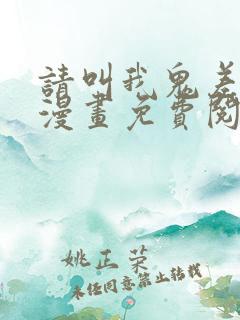 請叫我鬼差
漫畫免費閱
姚正荣
未经同意禁止转载